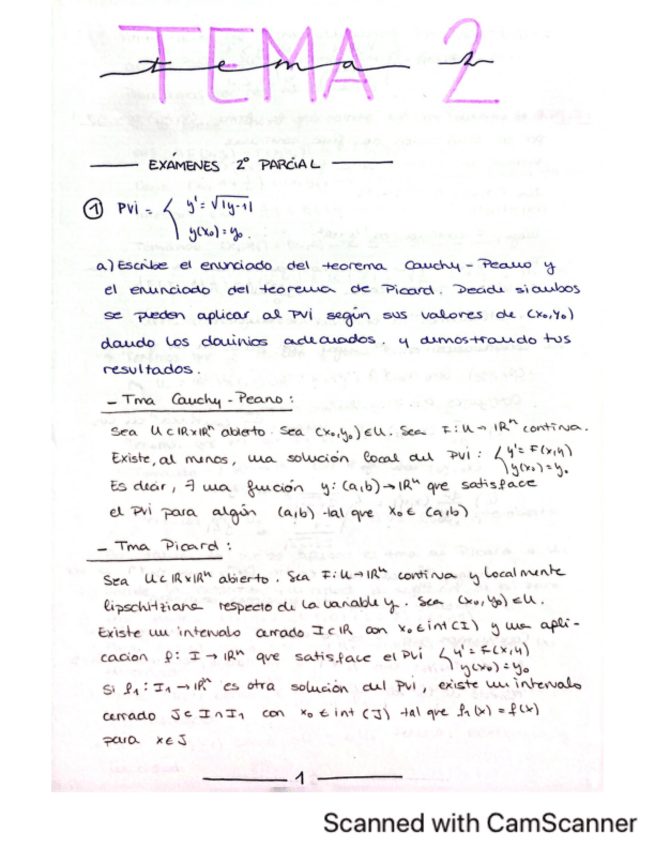 TEMA 2
tema 2
EXÁMENES 2º PARCIAL
① PVI = { y' = √|y-1|
y(x₀) = y₀.
a) Escribe el enunciado del teorema Cauchy-Peano y
el enunciado del teorema de Picard. Decide si ambos
se pueden aplicar al PVI según sus valores de (x₀,y₀)
dando los dominios adecuados. y demostrando tus
resultados.
- Tma Cauchy-Peano:
Sea U⊂ℝxℝⁿ abierto. Sea (x₀,y₀)∈U. Sea F:U→ℝⁿ continua.
Existe, al menos, una solución local del PVI: { y' = F(x,y)
y(x₀)=y₀
Es decir, ∃ una función y:(a,b)→ℝⁿ que satisface
el PVI para algún (a,b) tal que x₀∈(a,b)
- Tma Picard:
Sea U⊂ℝxℝⁿ abierto. Sea F:U→ℝⁿ continua y localmente
lipschitziana respecto de la variable y. Sea (x₀,y₀)∈U.
Existe un intervalo cerrado I⊂ℝ con x₀∈int(I) y una apli-
cacion f: I→ℝⁿ que satisface el PVI { y' = F(x,y)
y(x₀)=y₀
Si f₁:I₁→ℝⁿ es otra solución del PVI, existe un intervalo
cerrado J⊂I∩I₁ con x₀∈int(J) tal que f₁(x)=f(x)
para x∈J
1
Scanned with CamScanner